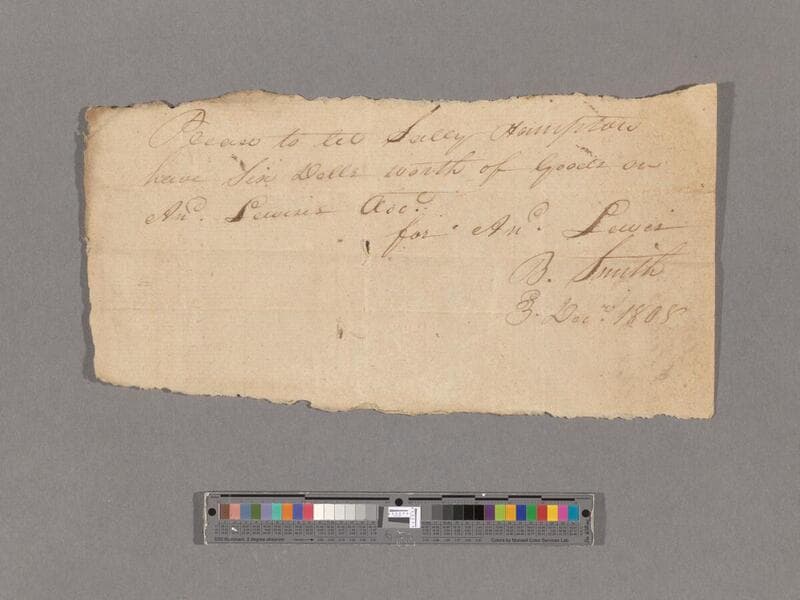 Please to let Sally Hampton
have Six Dolls worth of Goods on
And. Lewis's Acct.
for And. Lewis
B. Smith
3. Decr. 1808